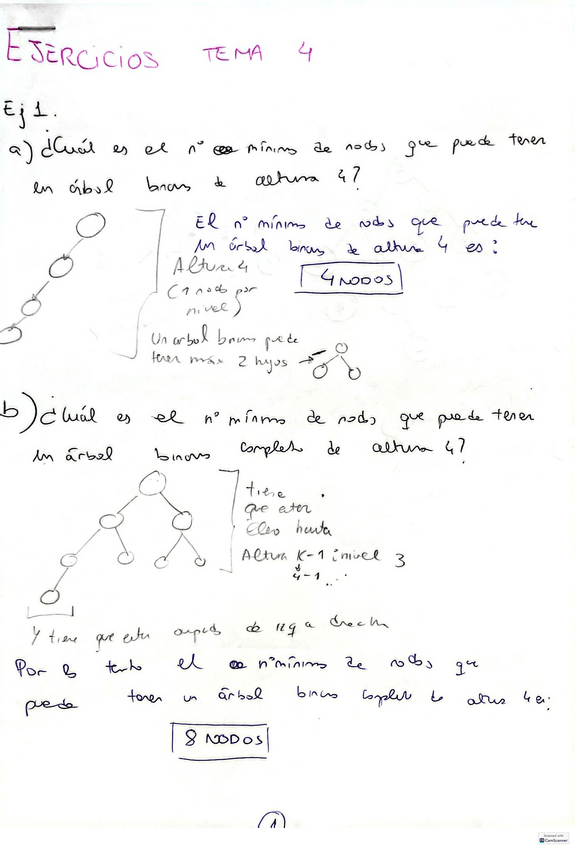 EJERCICIOS TEMA 4
Ej 1.
a) ¿Cuál es el nº mínimo de nodos que puede tener
un árbol binario de altura 4?
El nº mínimo de nodos que puede tene
un árbol binario de altura 4 es:
Altura 4
4 NODOS
(1 nodo por
nivel)
Un arbol binario puede
tener máx 2 hijos →
b) ¿Cuál es el nº mínimo de nodos que puede tener
un árbol binario completo de altura 4?
tiene
que estar
lleno hasta
Altura K-1 : nivel 3
4-1
Y tiene que estar de izq a derecha
Por lo tanto el nº mínimo de nodos que
puede tener un árbol binario completo de altura 4 es:
8 NODOS
1
Scanned with
CamScanner